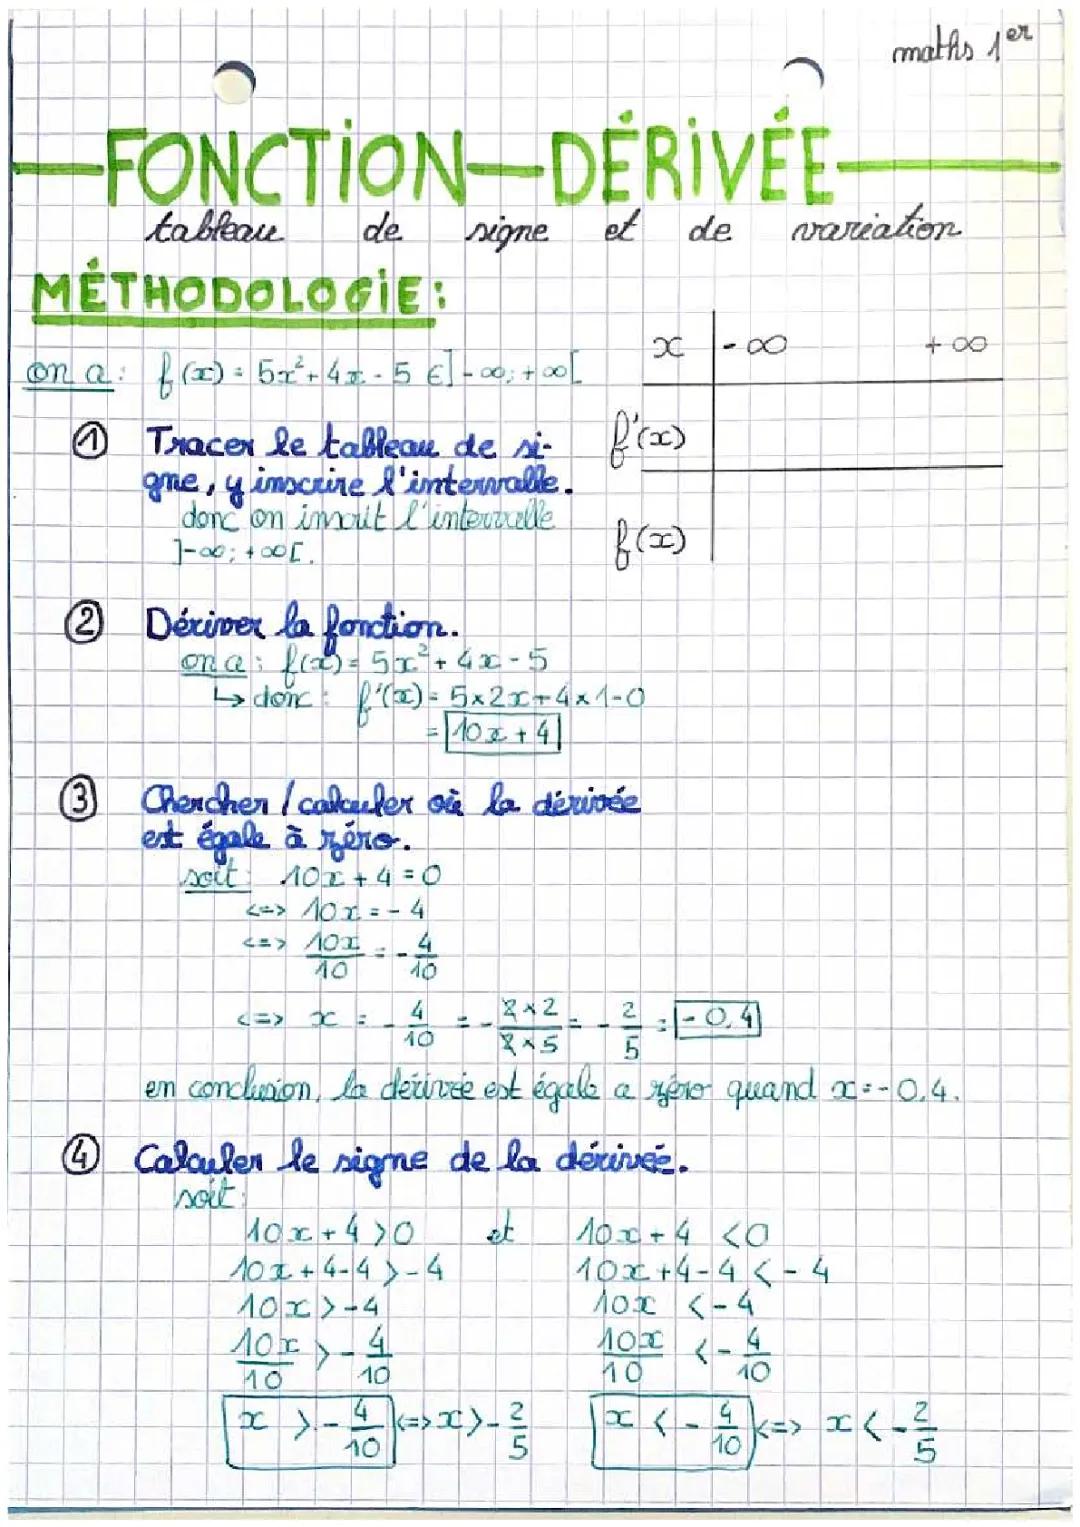 maths 1er
FONCTION DÉRIVÉE
tableau de signe et de variation
MÉTHODOLOGIE:
on a: f(x) = 5x²+4x-5 ∈]-∞;+∞[
x -∞ +∞
f'(x)
f(x)
① Tracer le tableau de si-
gne, y inscrire l'intervalle.
donc on inscrit l'intervalle
]-∞; +∞[.
② Dériver la fonction.
on a: f(x) = 5x²+4x-5
↳ donc: f'(x) = 5×2x+4×1-0
= 10x+4
③ Chercher / calculer où la dérivée
est égale à zéro.
soit: 10x+4=0
<=> 10x=-4
<=> 10x/10 = -4/10
<=> x = -4/10 = -2×2/2×5 = -2/5 = -0,4
en conclusion, la dérivée est égale a zéro quand x=-0,4.
④ Calculer le signe de la dérivée.
soit:
10x+4>0 et 10x+4 <0
10x+4-4>-4 10x+4-4<-4
10x>-4 10x <-4
10x/10 > -4/10 10x/10 < -4/10
x > -4/10 <=> x > -2/5 x < -4/10 <=> x < -2/5